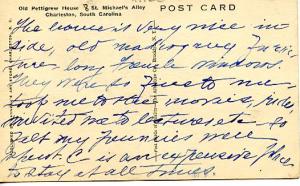 POST CARD
Old Pettigrew House St. Michael's Alley
Charleston, South Carolina
The house is very nice in-
side, old mahogany furni-
ture long French windows.
They were so nice to me
took me to the movies,
invited me to lectures, etc. so
felt my pennies were
spent. C is an expensive place
to stay at all times.